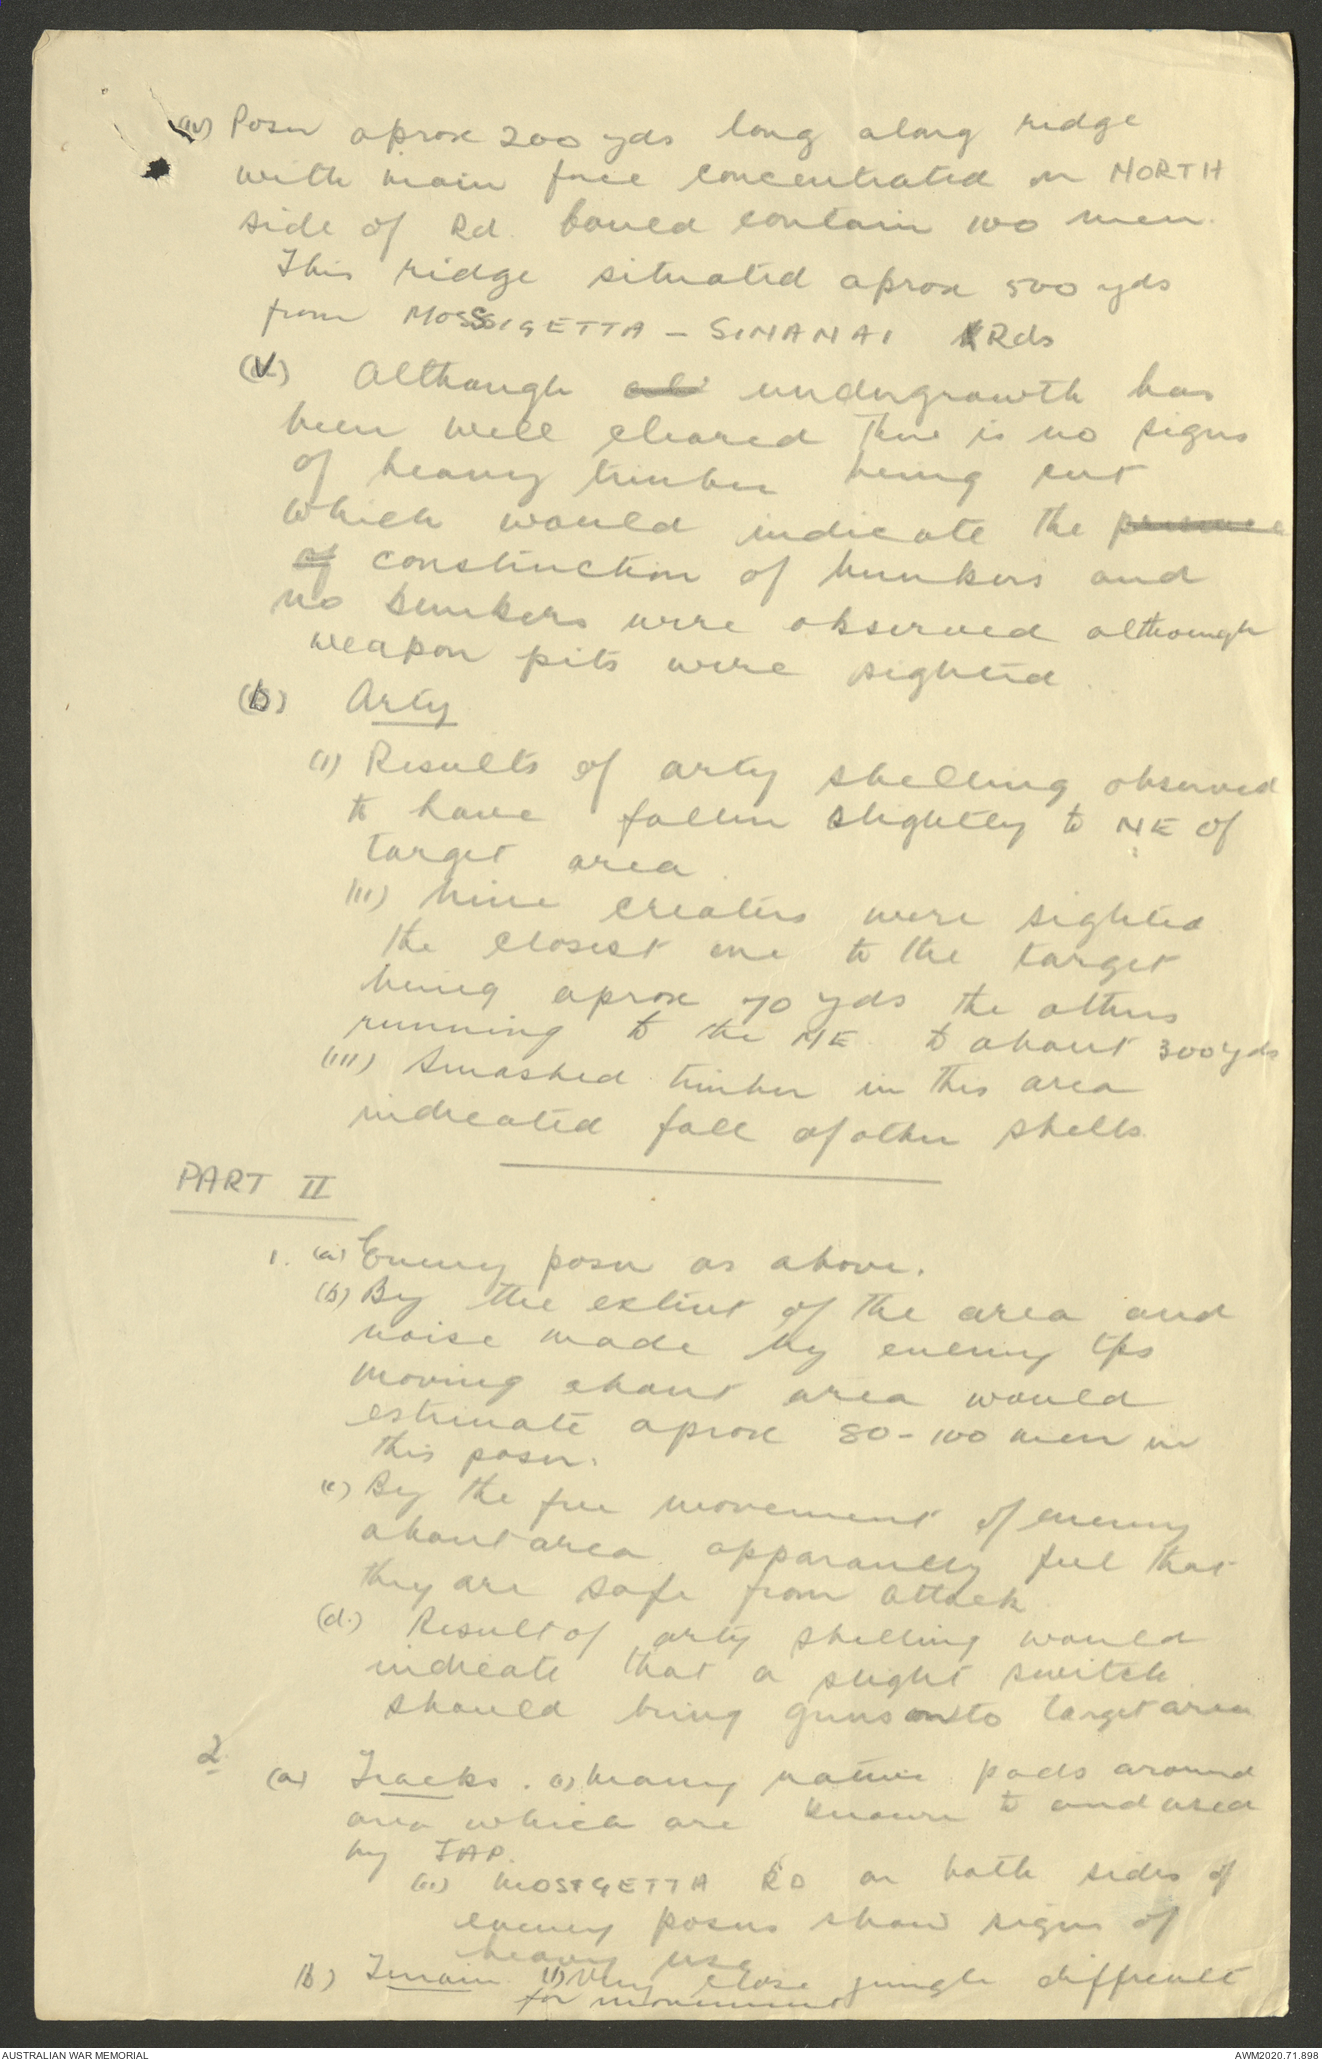 (iv) Posn aprox 200 yds long along ridge
with main force concentrated on NORTH
side of Rd. Could contain 100 men.
This ridge situated aprox 500 yds
from MOSSIGETTA - SINANAI Rds
(v) Although undergrowth has
been well cleared there is no signs
of heavy timber being cut
which would indicate the presence
of construction of bunkers and
no bunkers were observed although
weapon pits were sighted.
(b) Arty
(i) Results of arty shelling observed
to have fallen slightly to NE of
target area.
(ii) Nine creaters were sighted
the closest one to the target
being aprox 70 yds the others
running to the NE to about 300 yds
(iii) Smashed timber in this area
indicated fall of other shells.
PART II
1. (a) Enemy posn as above.
(b) By the extent of the area and
noise made by enemy tps
moving about area would
estimate aprox 80-100 men in
this posn.
(c) By the free movement of enemy
about area apparantly feel that
they are safe from attack
(d.) Result of arty shelling would
indicate that a slight switch
should bring guns onto target area
2.
(a) Tracks. (i) Many native pads around
area which are known to and used
by JAP.
(ii) MOSIGETTA RD on both sides of
enemy posns show signs of
heavy use
(b) Terrain (i) Very close jungle difficult
for movement
AUSTRALIAN WAR MEMORIAL
AWM2020.71.898